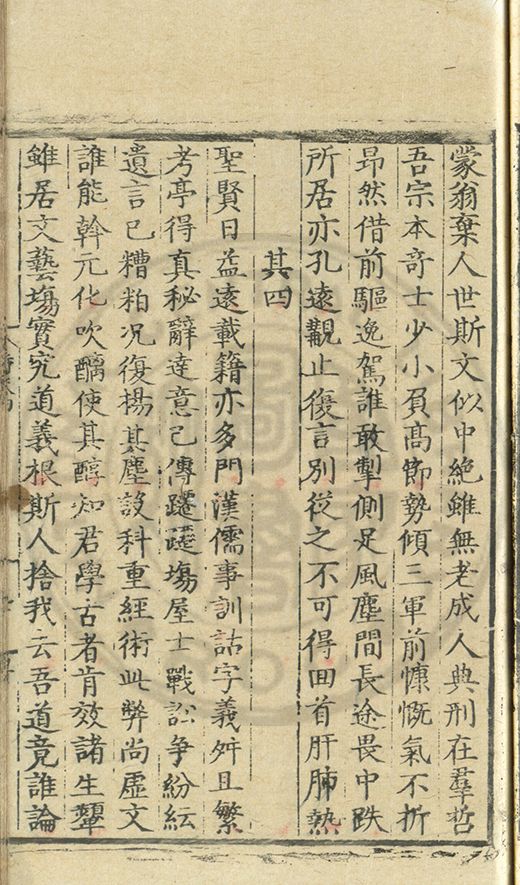 蒙翁棄人世斯文似中絶雖無老成人典刑在羣哲
吾宗本竒士少小負髙節勢傾三軍前慷慨氣不折
昻然借前驅逸駕誰敢掣側足風塵間長途畏中跌
所居亦孔遠觀止復言别從之不可得囬首肝肺熱
其四
聖賢日益遠載籍亦多門漢儒事訓詁字義舛且繁
考亭得真秘辭達意已傳蹮蹮塲屋士戰訟争紛紜
遺言已糟粕况復楊其塵設科重經術此弊尚虚文
誰能斡元化吹醨使其醇知君學古者肯效諸生顰
雖居文藝塲實究道義根斯人捨我云吾道竟誰論